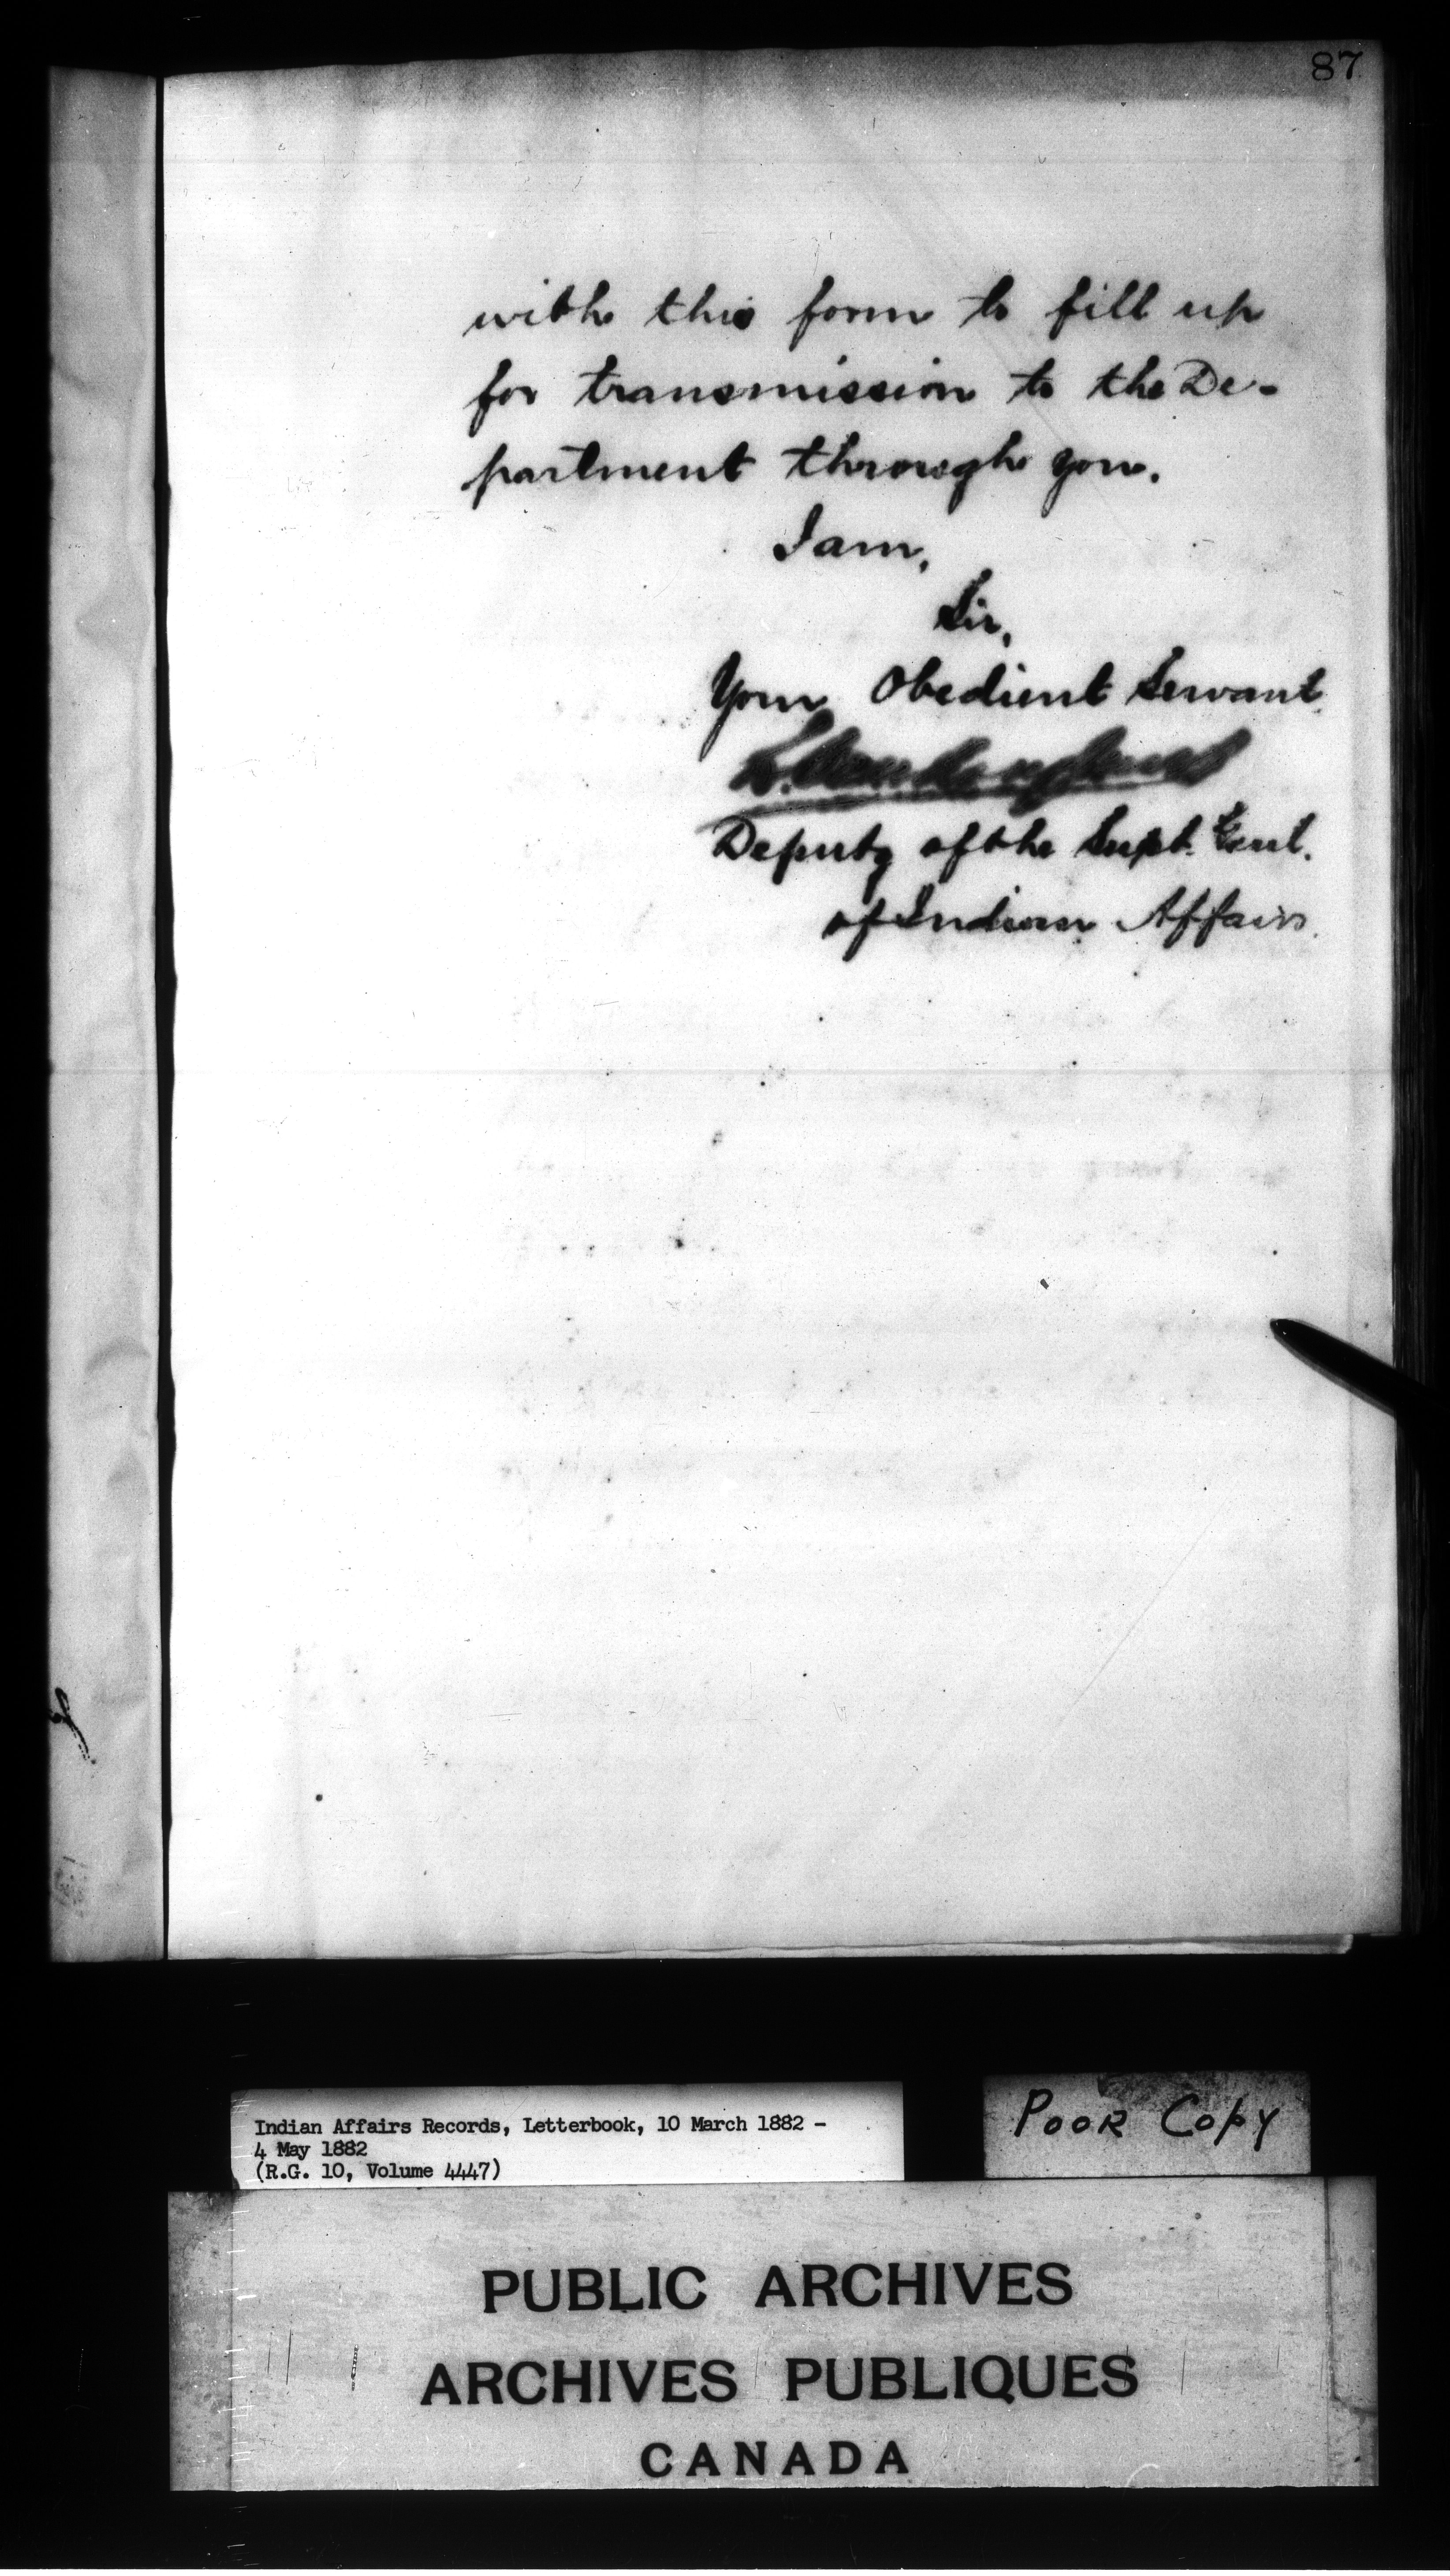 87
with this form to fill up
for transmission to the De-
partment through you.
I am,
Sir,
Your Obedient Servant
L. Vankoughnet
Deputy of the Supt. Genl.
of Indian Affairs.
Indian Affairs Records, Letterbook, 10 March 1882 -
4 May 1882
(R.G. 10, Volume 4447)
POOR COPY
PUBLIC ARCHIVES
ARCHIVES PUBLIQUES
CANADA